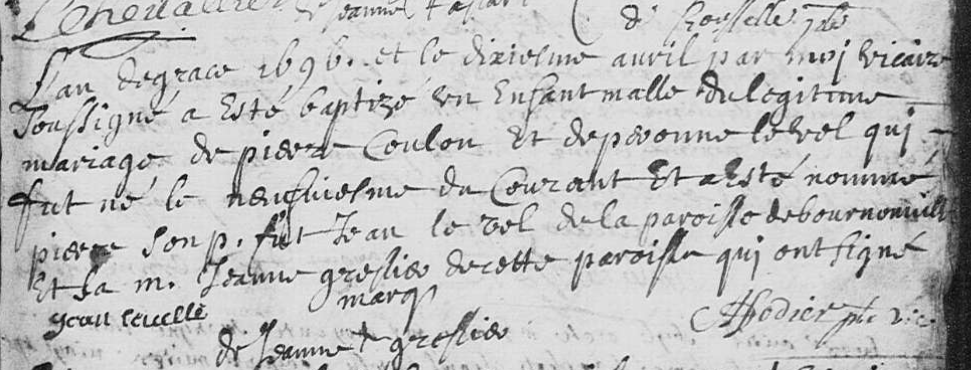 Jeanne
L'an de grace 1696. et le dixiesme avril par moy vicaire
soussigné a Esté baptizé un Enfant malle du legitime
mariage de pierre Coulon Et de peronne level qui
fut né le neufviesme du Courant Et a Esté nommé
pierre son p. fut Jean le vel de la paroisse de bournonville
Et sa m. Jeanne greslier de cette paroisse qui ont signé
marq
jean levelle
de Jeanne + greslier